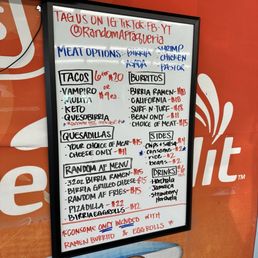 TAG US ON IG TIKTOK FB YT
@RANDOMAFTAQUERIA
MEAT OPTIONS: BIRRIA SHRIMP
ASADA CHICKEN
PASTOR
TACOS 6 for $20
VAMPIRO or
MULITA $4 ea
KETO
QUESOBIRRIA
BURRITOS
BIRRIA RAMEN - $18
CALIFORNIA - $18
SURF N TURF - $18
BEAN ONLY - $11
CHOICE OF MEAT - $15
QUESADILLAS
YOUR CHOICE OF MEAT - $15
CHEESE ONLY - $11
SIDES
CHIPS & SALSA $4
CONSOMÉ
RICE
BEANS
RANDOM AF MENU
32OZ BIRRIA RAMEN - $15
BIRRIA GRILLED CHEESE - $15
RANDOM AF FRIES - $15
PIZADILLA - $22
BIRRIA EGGROLLS - $12
DRINKS
Horchata
Jamaica
Strawberry
Horchata
*CONSOME ONLY INCLUDED WITH
RAMEN BURRITO & EGG ROLLS